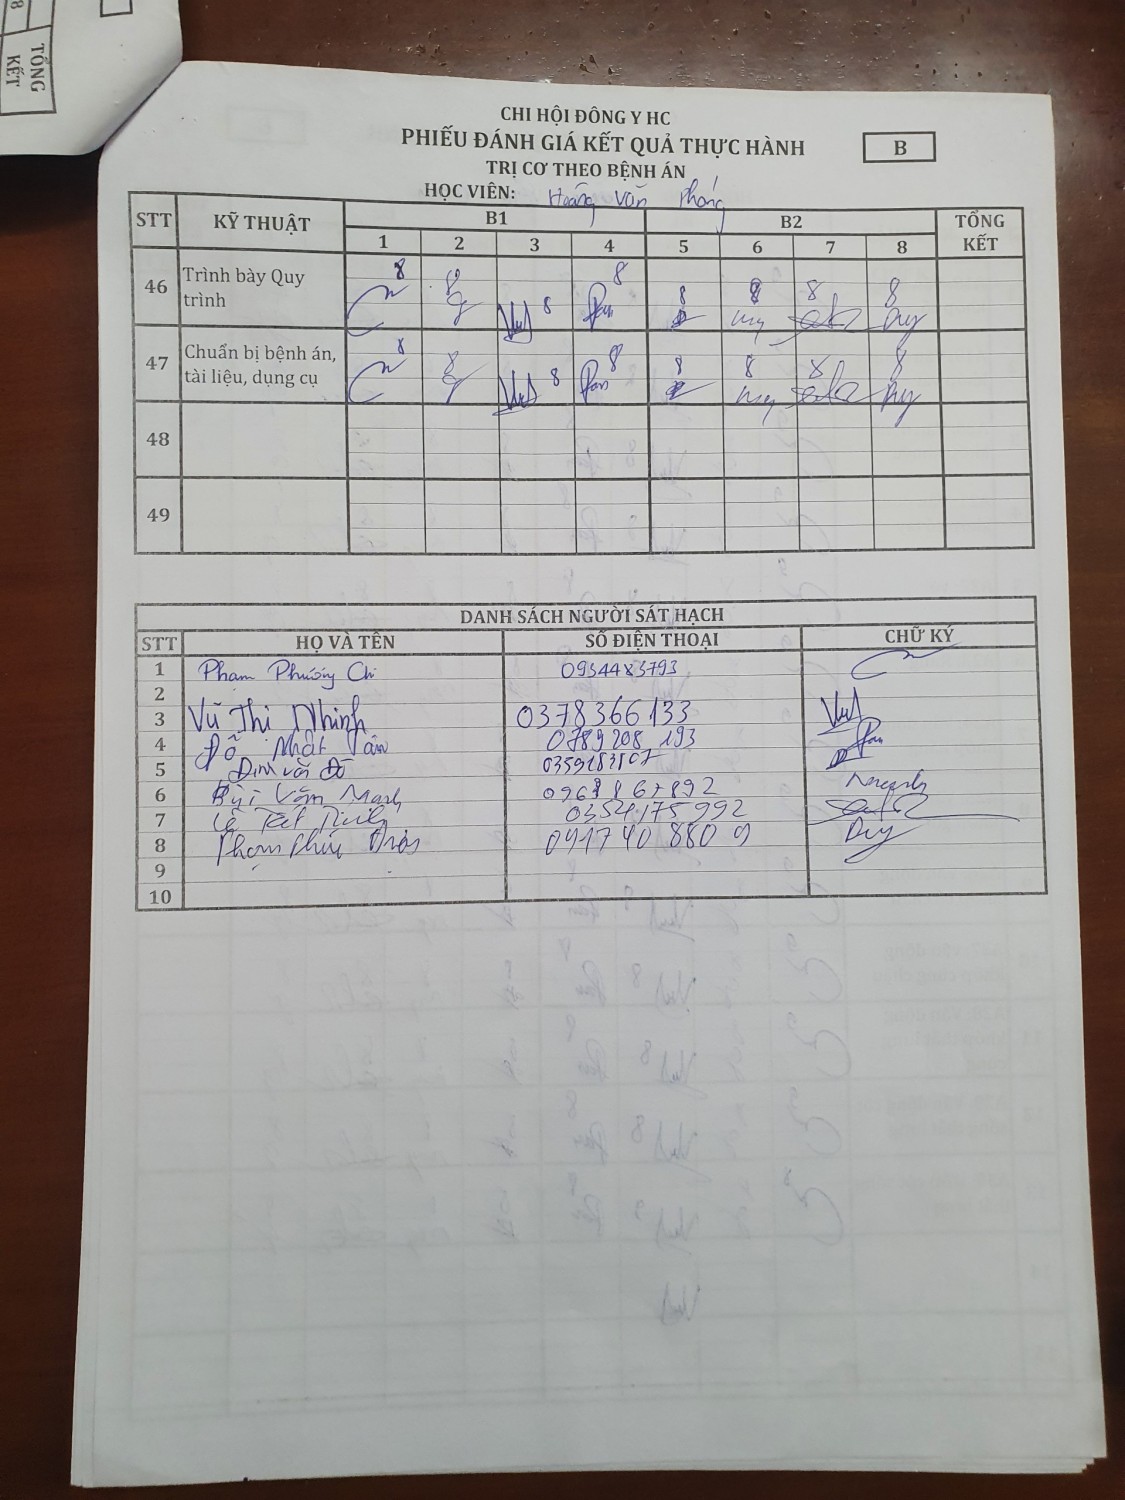 8
TỔNG
KẾT
CHI HỘI ĐÔNG Y HC
PHIẾU ĐÁNH GIÁ KẾT QUẢ THỰC HÀNH
B
TRỊ CƠ THEO BỆNH ÁN
HỌC VIÊN: Hoàng Văn Phóng
STT KỸ THUẬT B1 B2 TỔNG KẾT
1 2 3 4 5 6 7 8
46 Trình bày Quy trình 8 8 8 8 8 8 8 8
Duy
47 Chuẩn bị bệnh án, tài liệu, dụng cụ 8 8 8 8 8 8 8 8
Duy
48
49
DANH SÁCH NGƯỜI SÁT HẠCH
STT HỌ VÀ TÊN SỐ ĐIỆN THOẠI CHỮ KÝ
1 Phạm Phương Chi 0934483793
2
3 Vũ Thị Nhinh 0378366133
4 Đỗ Nhật 0789208193
5 Đinh văn Đô
6 Bùi Văn Mạnh
7 Lê 0354175992
8 Phạm 0917408809 Duy
9
10